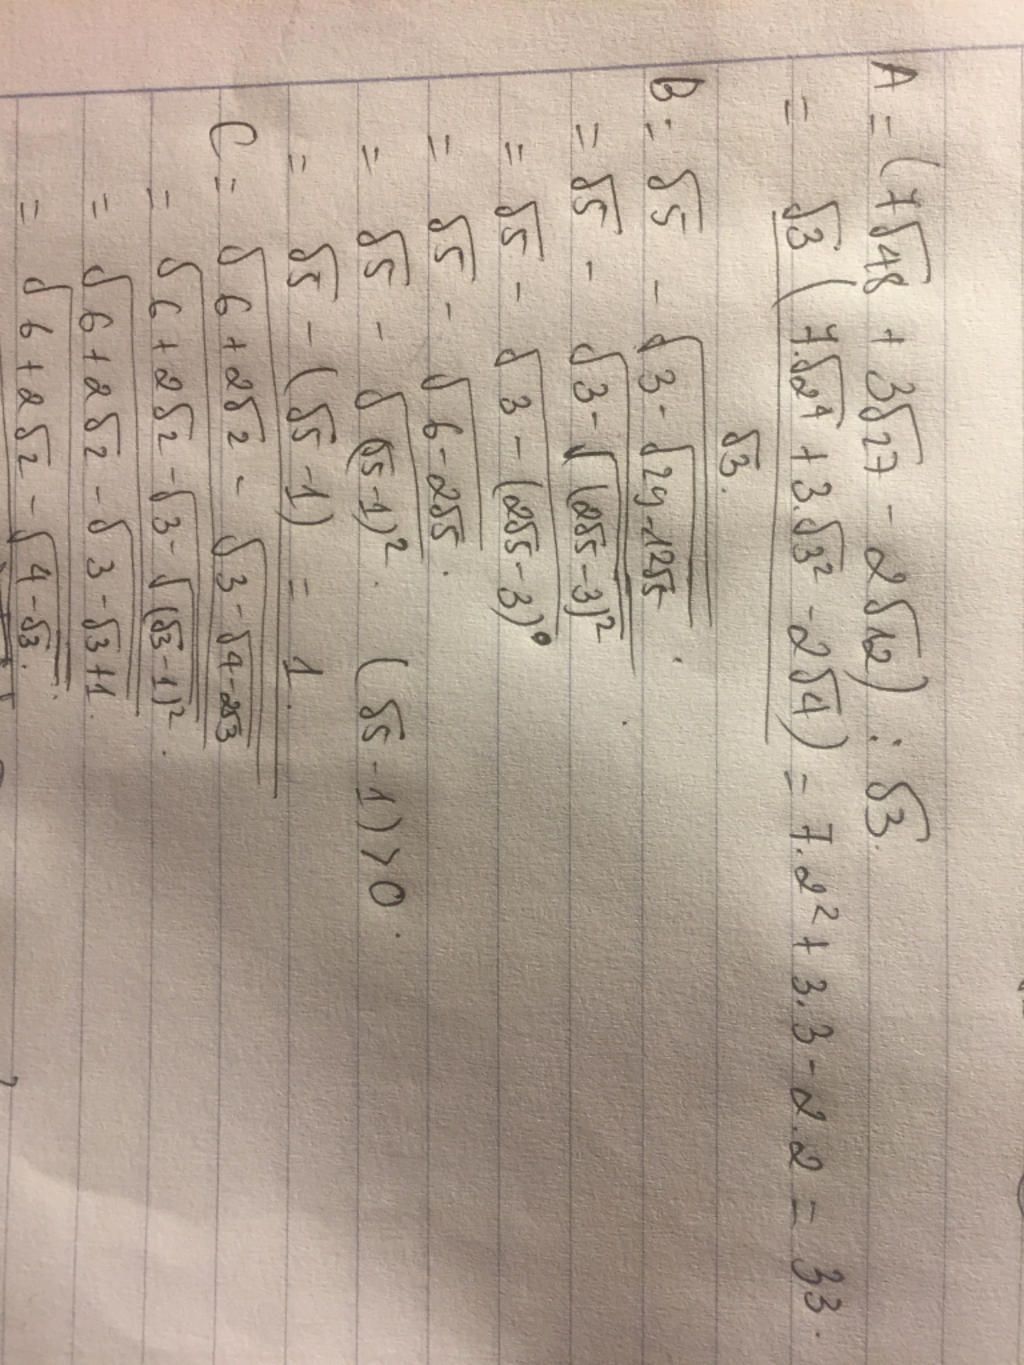 A = (7√48 + 3√27 - 2√12) : √3.
= √3 (7.√2⁴ + 3.√3² - 2√4) / √3. = 7.2² + 3.3 - 2.2 = 33.
B = √5 - √(3 - √(29-12√5)).
= √5 - √(3 - √((2√5-3)²)).
= √5 - √(3 - (2√5-3)).
= √5 - √(6-2√5).
= √5 - √((√5-1)²). (√5-1) > 0.
= √5 - (√5-1) = 1.
C = √(6+2√2 - √(3-√(4-2√3)))
= √(6+2√2-√(3-√((√3-1)²))).
= √(6+2√2-√(3-√3+1)).
= √(6+2√2-√(4-√3)).